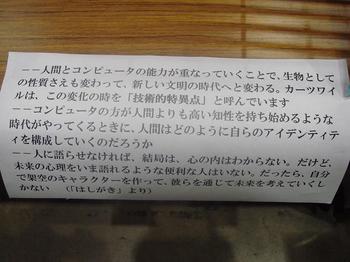 ――人間とコンピュータの能力が重なっていくことで、生物として
の性質さえも変わって、新しい文明の時代へと変わる。カーツワイ
ルは、この変化の時を「技術的特異点」と呼んでいます
――コンピュータの方が人間よりも高い知性を持ち始めるような
時代がやってくるときに、人間はどのように自らのアイデンティテ
ィを構成していくのだろうか
――人に語らせなければ、結局は、心の内はわからない。だけど、
未来の心理をいま語れるような便利な人はいない。だったら、自分
で架空のキャラクターを作って、彼らを通じて未来を考えていくし
かない　（「はしがき」より）